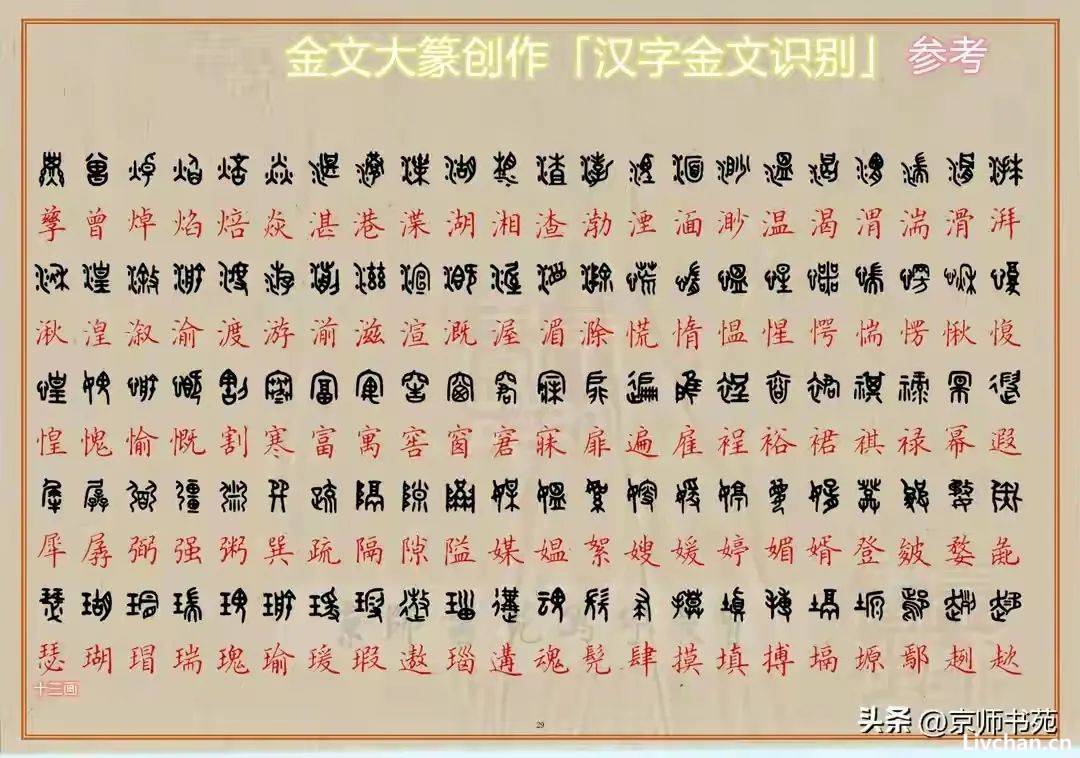 金文大篆创作「汉字金文识别」 参考
孳曾焯焰焙焱湛港渫湖湘渣渤湮湎渺温渴渭湍滑湃
湫湟溆渝渡游湔滋渲溉渥湄滁慌惰愠惺愕惴愣愀愎
惶愧愉慨割寒富寓窖窗窘寐扉遍雇裎裕裙祺禄幂遐
犀孱弼强粥巽疏隔隙隘媒媪絮嫂媛婷媚婿登皴婺彘
瑟瑚瑁瑞瑰瑜瑗瑕遨瑙遘魂髡肆摸填搏塥塬鄢趔趑
十三画
29
头条 @京师书苑
Livchan.cn